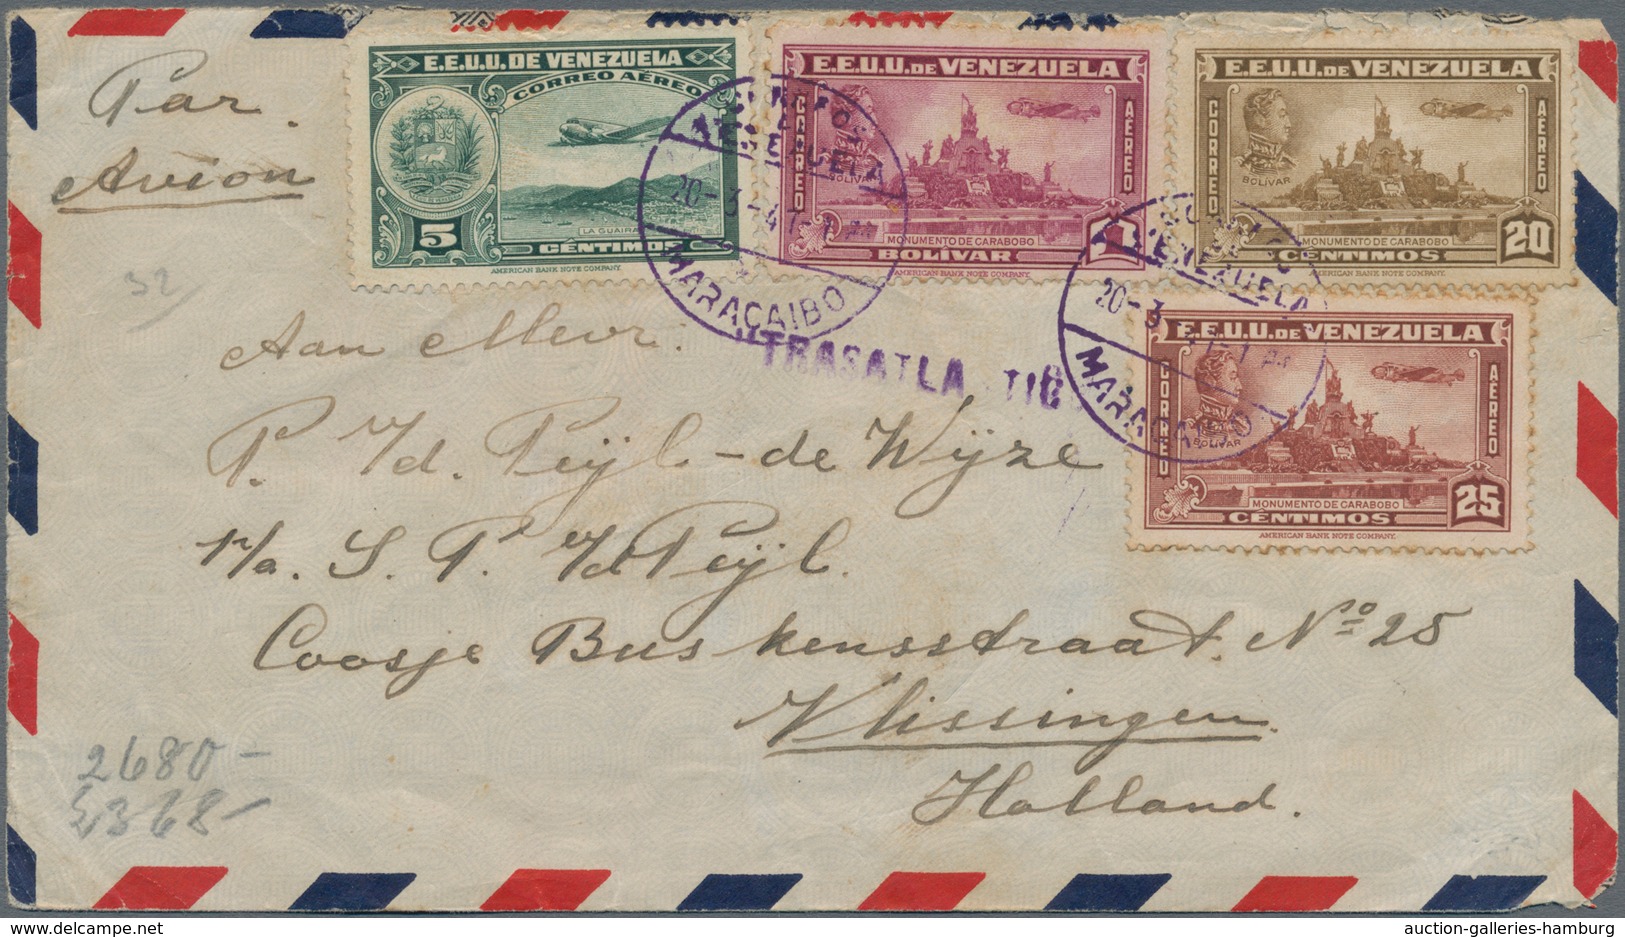 Par
Avion
E.E.U.U. DE VENEZUELA
CORREO AÉREO
LA GUAIRA
5
CÉNTIMOS
AMERICAN BANK NOTE COMPANY.
E.E.U.U. DE VENEZUELA
CORREO
AEREO
MONUMENTO DE CARABOBO
BOLÍVAR
1
AMERICAN BANK NOTE COMPANY.
E.E.U.U. DE VENEZUELA
CORREO
AEREO
BOLÍVAR
MONUMENTO DE CARABOBO
CÉNTIMOS
20
AMERICAN BANK NOTE COMPANY.
E.E.U.U. DE VENEZUELA
CORREO
AEREO
BOLÍVAR
MONUMENTO DE CARABOBO
CÉNTIMOS
25
AMERICAN BANK NOTE COMPANY.
VENEZUELA
20-3-4
MARACAIBO
VENEZUELA
20-3
MARACAIBO
"TRASATLA TIC
32
Aan Mevr:
P. v/d. Peijl-de Wijze
p/a. S. P. v/d Peijl.
Coosje Buskensstraat. No 25
Vlissingen
Holland.
2680-
368-
auction-galleries-hamburg